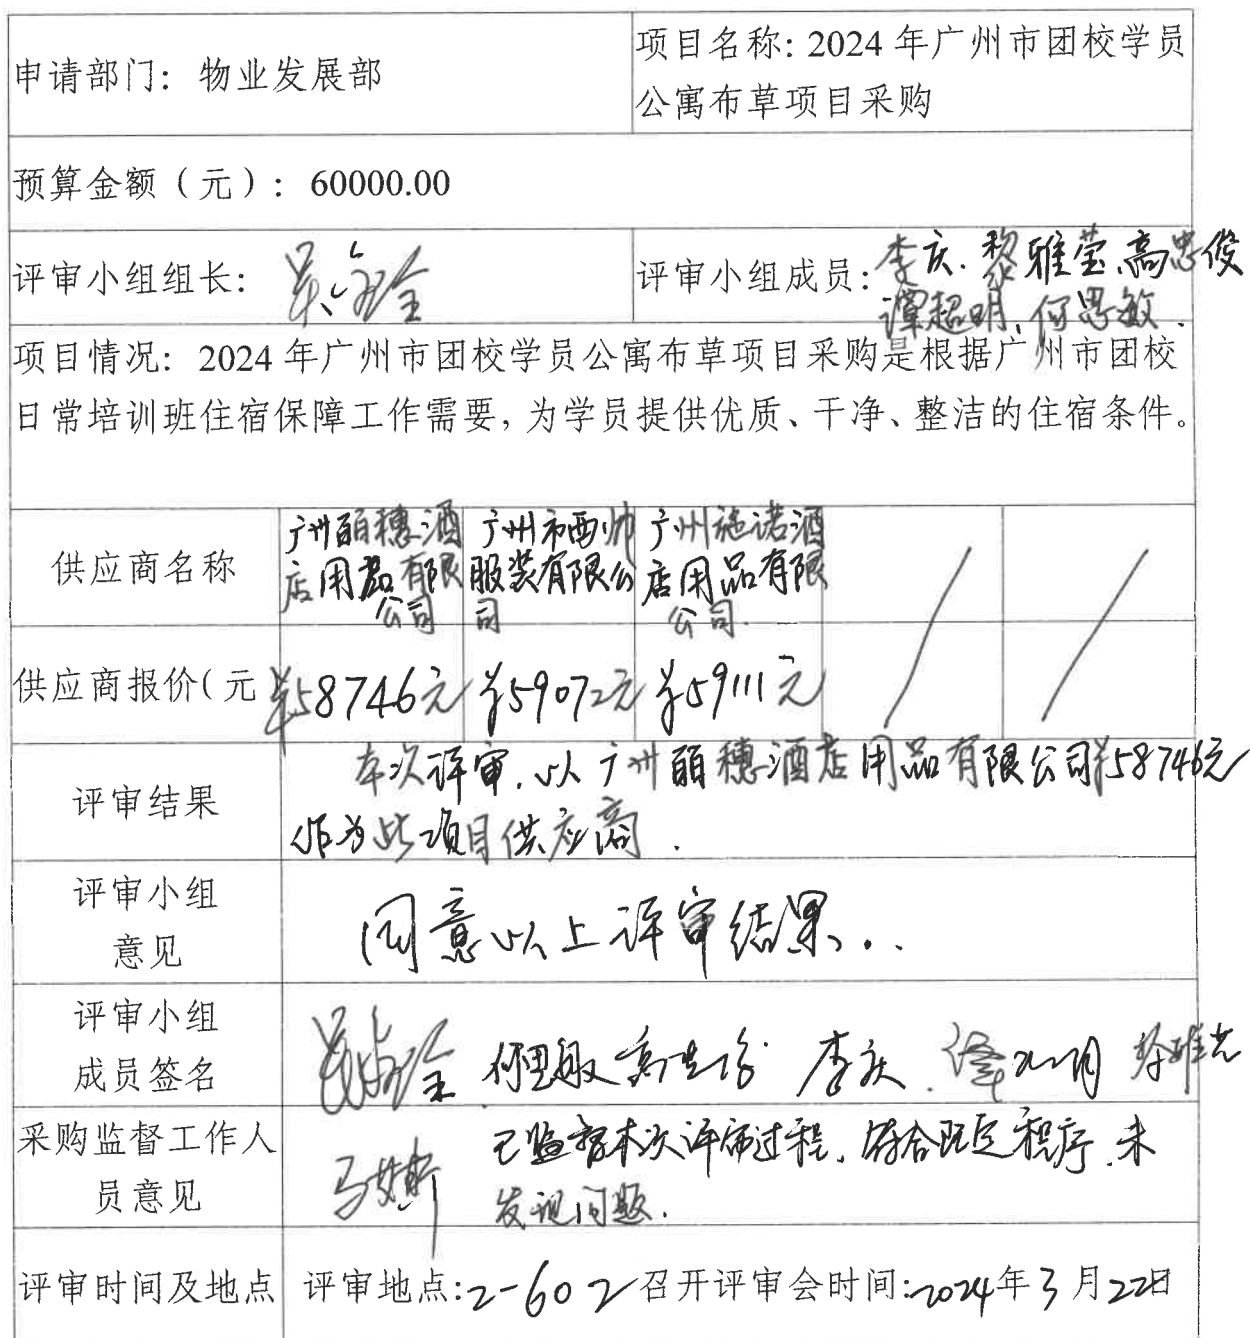 申请部门：物业发展部
项目名称: 2024 年广州市团校学员
公寓布草项目采购
预算金额（元）: 60000.00
评审小组组长:
评审小组成员: 李庆. 黎雅莹.高忠俊
谭超明, 何思敏.
项目情况: 2024 年广州市团校学员公寓布草项目采购是根据广州市团校
日常培训班住宿保障工作需要, 为学员提供优质、干净、整洁的住宿条件。
供应商名称
广州丽穗酒
店用品有限
公司
广州市西帅
服装有限公
司
广州施诺酒
店用品有限
公司.
供应商报价(元
¥58746元
¥59072元
¥59111元
评审结果
本次评审, 以广州丽穗酒店用品有限公司¥58746元
作为此项目供应商.
评审小组
意见
同意以上评审结果..
评审小组
成员签名
何思敏 高忠俊 李庆.
采购监督工作人
员意见
已监督本次评审过程, 符合既定程序, 未
发现问题.
评审时间及地点
评审地点:2-602 召开评审会时间:2024年3月22日